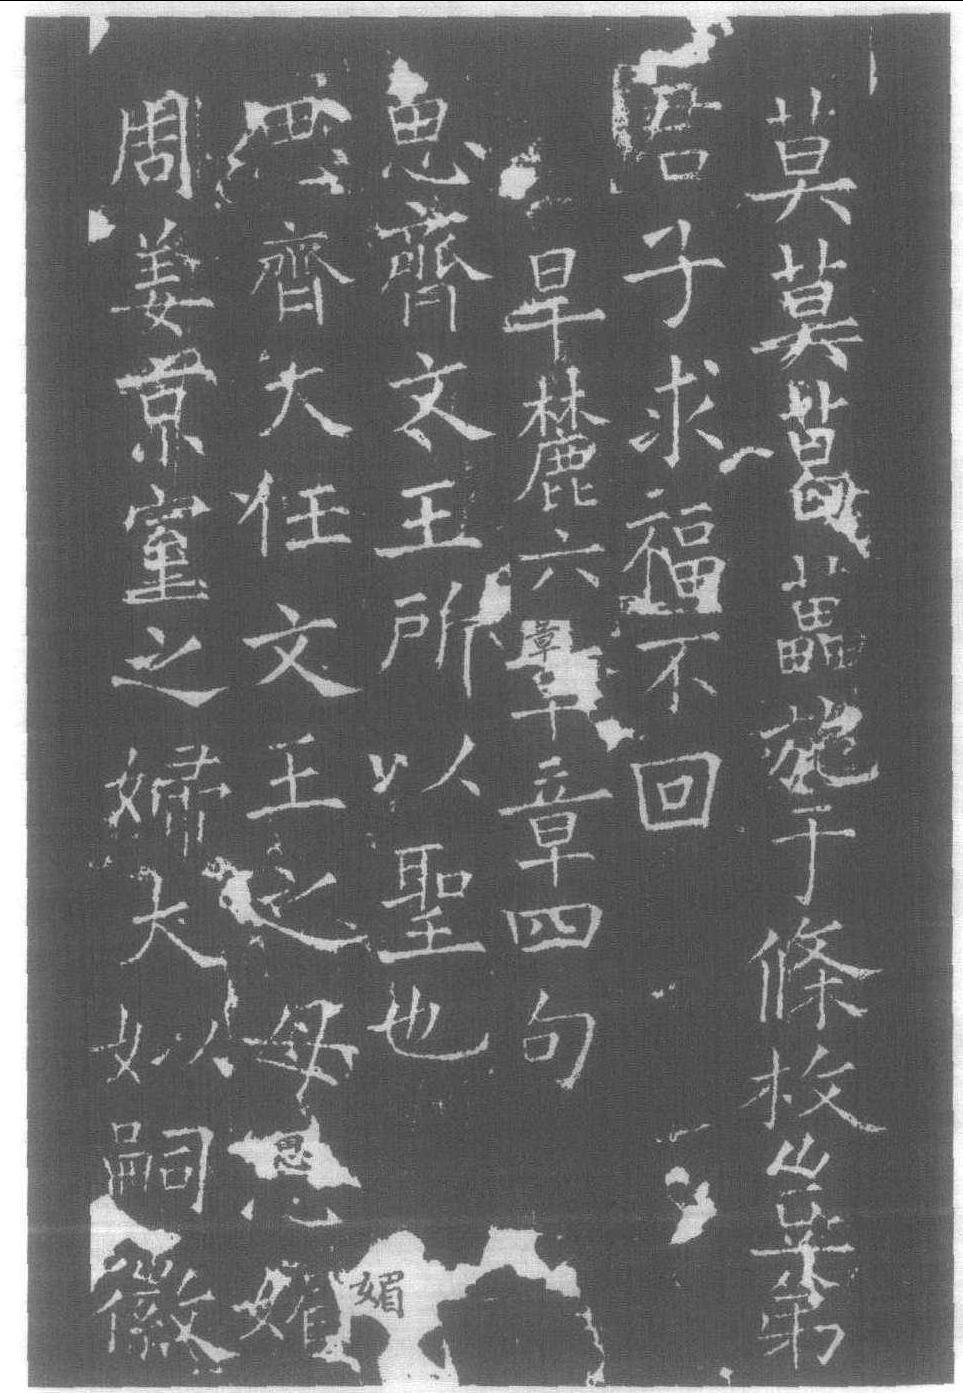 莫莫葛藟施于條枚豈弟
君子求福不回
旱麓六章章四句
思齊文王所以聖也
媚
思齊大任文王之母思媚
周姜京室之婦大姒嗣徽